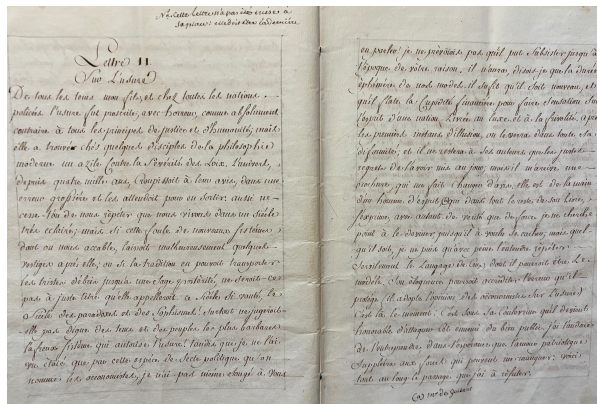 Nª cette lettre n'a pas été mise à
sa place elle doit être la dernière
Lettre 11
Sur L'usure
De tous les tems mon fils, et chez toutes les nations
policées l'usure fut proscrite, avec horreur, comme absolument
contraire à tous les principes de justice et d'humanité; mais
elle a trouvé chés quelques disciples de la philosophie
moderne un azile contre la sévérité des Loix. L'univers,
depuis quatre mille ans, croupissoit à leur avis, dans une
erreur grossière et les attendoit pour en sortir. aussi ne
cesse-t'on de nous répéter que nous vivons dans un siècle
très éclairé; mais si cette foule de nouveaux sistèmes
dont on nous accable, laissoit malheureusement quelques
vestiges après elle; ou si la tradition en pouvoit transporter
les tristes débris jusqu'à une sage postérité, ne seroit-ce
pas à juste titre qu'elle appelleroit ce siècle si vanté, le
siècle des paradoxes et des sophismes! surtout ne jugeroit-
elle pas digne des tems et des peuples les plus barbares
l'affreux sistème qui autorise l'usure! tandis que je ne l'ai
vu étalé que par cette espèce de secte politique qu'on
nomme les oeconomistes, je n'ai pas même songé à vous
en parler: je ne prévoiois pas qu'il put subsister jusqu'à
l'époque de votre raison. il n'aura, disois-je que la durée
éphémère de nos modes. il suffit qu'il soit nouveau, et
qu'il flate la cupidité financière pour faire sensation sur
l'esprit d'une nation livrée au luxe et à la frivolité. après
les premiers instans d'illusion, on le verra dans toute sa
difformité; et il ne restera à ses auteurs que les justes
regrets de l'avoir mis au jour; mais il m'arrive une
brochure qui me fait changer d'avis, elle est de la main
d'un homme d'esprit (a) dans le reste de son Livre,
s'exprime avec autant de vérité que de force je ne cherche
point à le deviner puisqu'il a voulu se cacher; mais quel
qu'il soit, je ne puis qu'avec peine l'entendre répéter
servilement le langage de ceux dont il pourroit être le
modèle. son éloquence pourroit accréditer l'erreur qu'il
protège (il adopte l'opinion des oeconomistes sur l'usure)
c'est là le moment: c'est sous sa sauvegarde qu'il devient
honorable d'attaquer cet ennemi du bien public. j'ai l'audace
de l'entreprendre, dans l'espérance que l'amour patriotique
suppléera aux forces qui peuvent me manquer: voici
tout au long le passage que j'ai à réfuter.
(a) Mr de